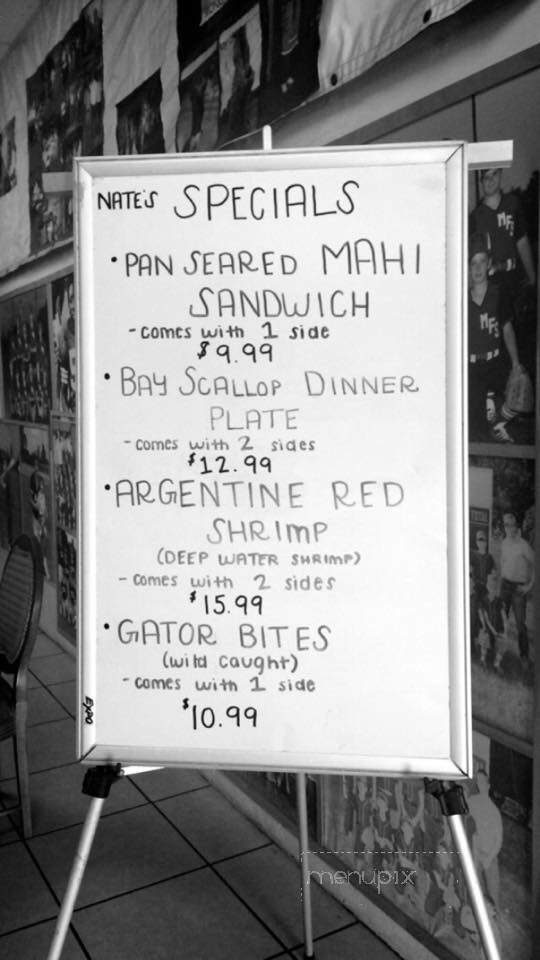 NATE'S SPECIALS
• PAN SEARED MAHI
SANDWICH
- comes with 1 side
$9.99
• BAY SCALLOP DINNER
PLATE
- comes with 2 sides
$12.99
• ARGENTINE RED
SHRIMP
(DEEP WATER SHRIMP)
- comes with 2 sides
$15.99
• GATOR BITES
(wild caught)
- comes with 1 side
$10.99
EXPO
MFS
MFS
menupix